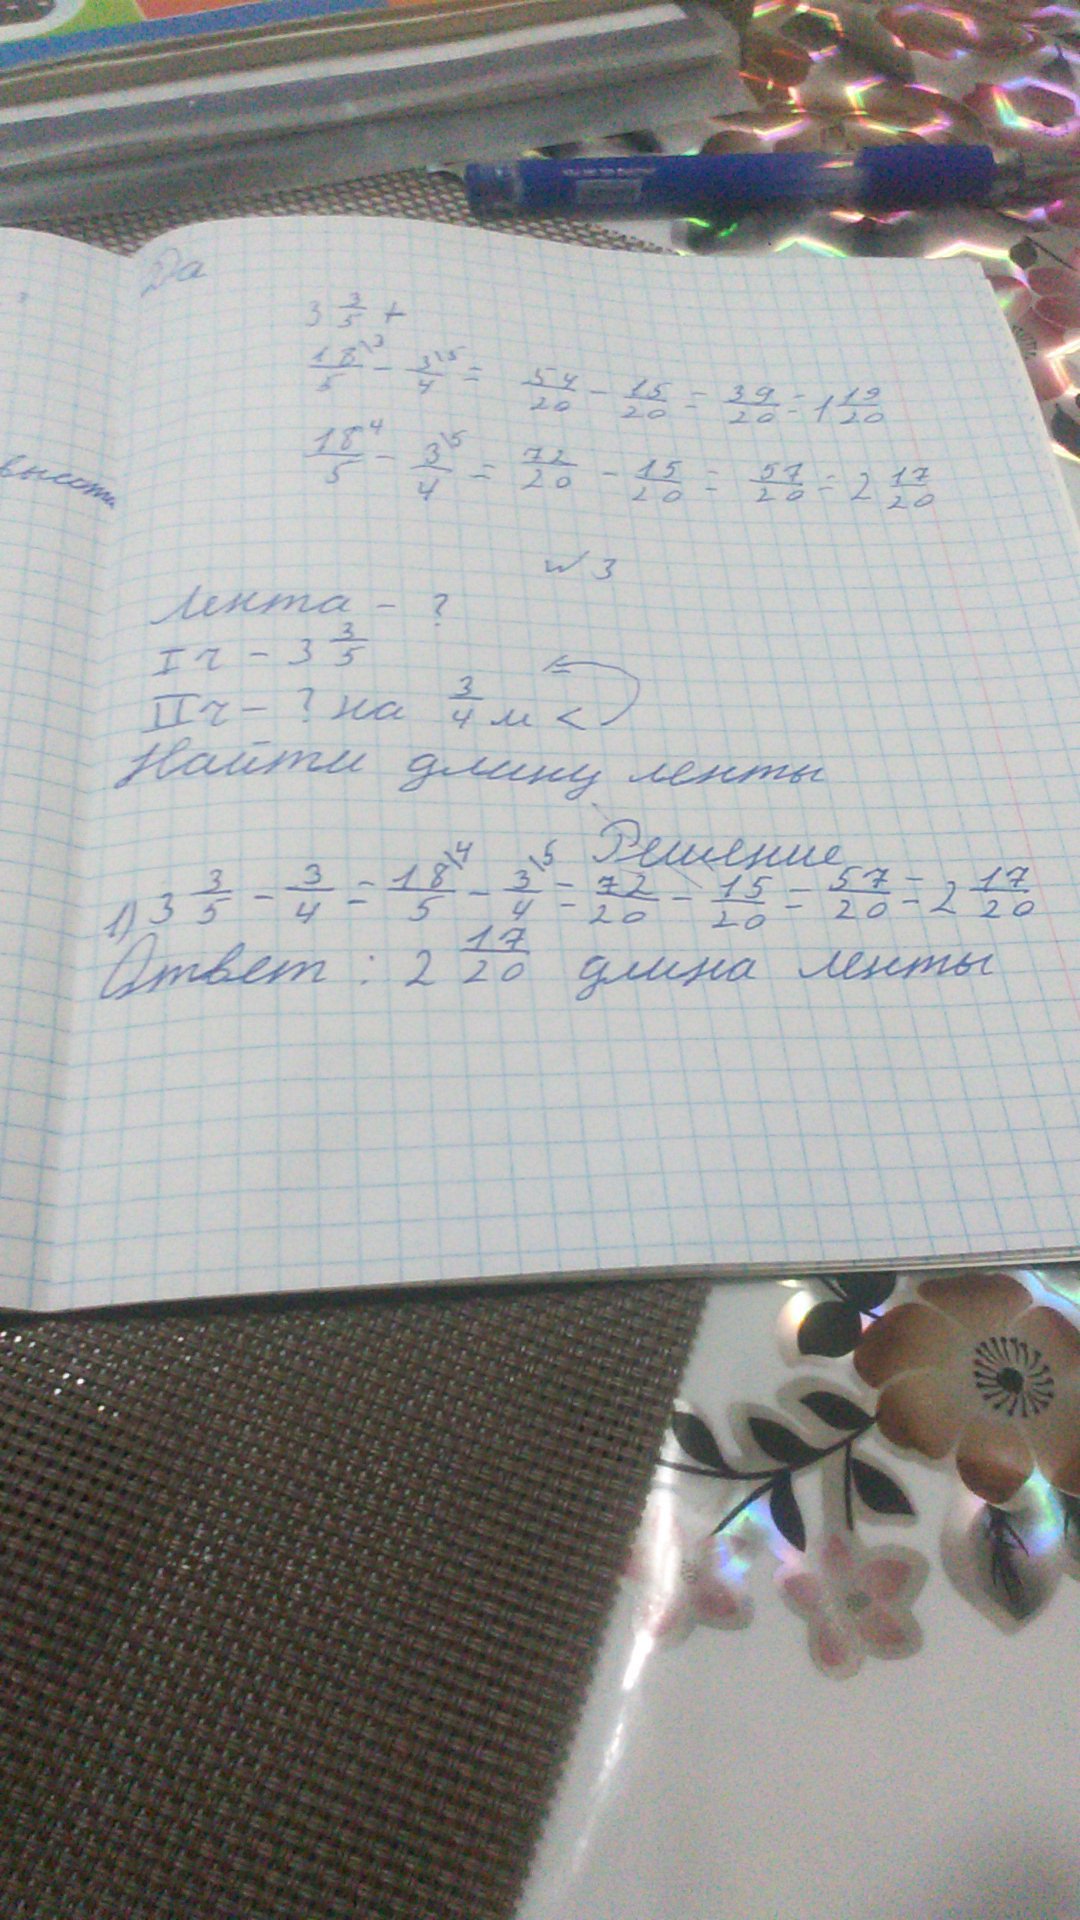 Да
3 3/5 +
18\3/5 - 3\5/4 = 54/20 - 15/20 = 39/20 = 1 19/20
18 4/5 - 3\5/4 = 72/20 - 15/20 = 57/20 = 2 17/20
№ 3
Лента - ?
I ч - 3 3/5
II ч - ? на 3/4 м <
Найти длину ленты
Решение
1) 3 3/5 - 3/4 = 18\4/5 - 3\5/4 = 72/20 - 15/20 = 57/20 = 2 17/20
Ответ : 2 17/20 длина ленты